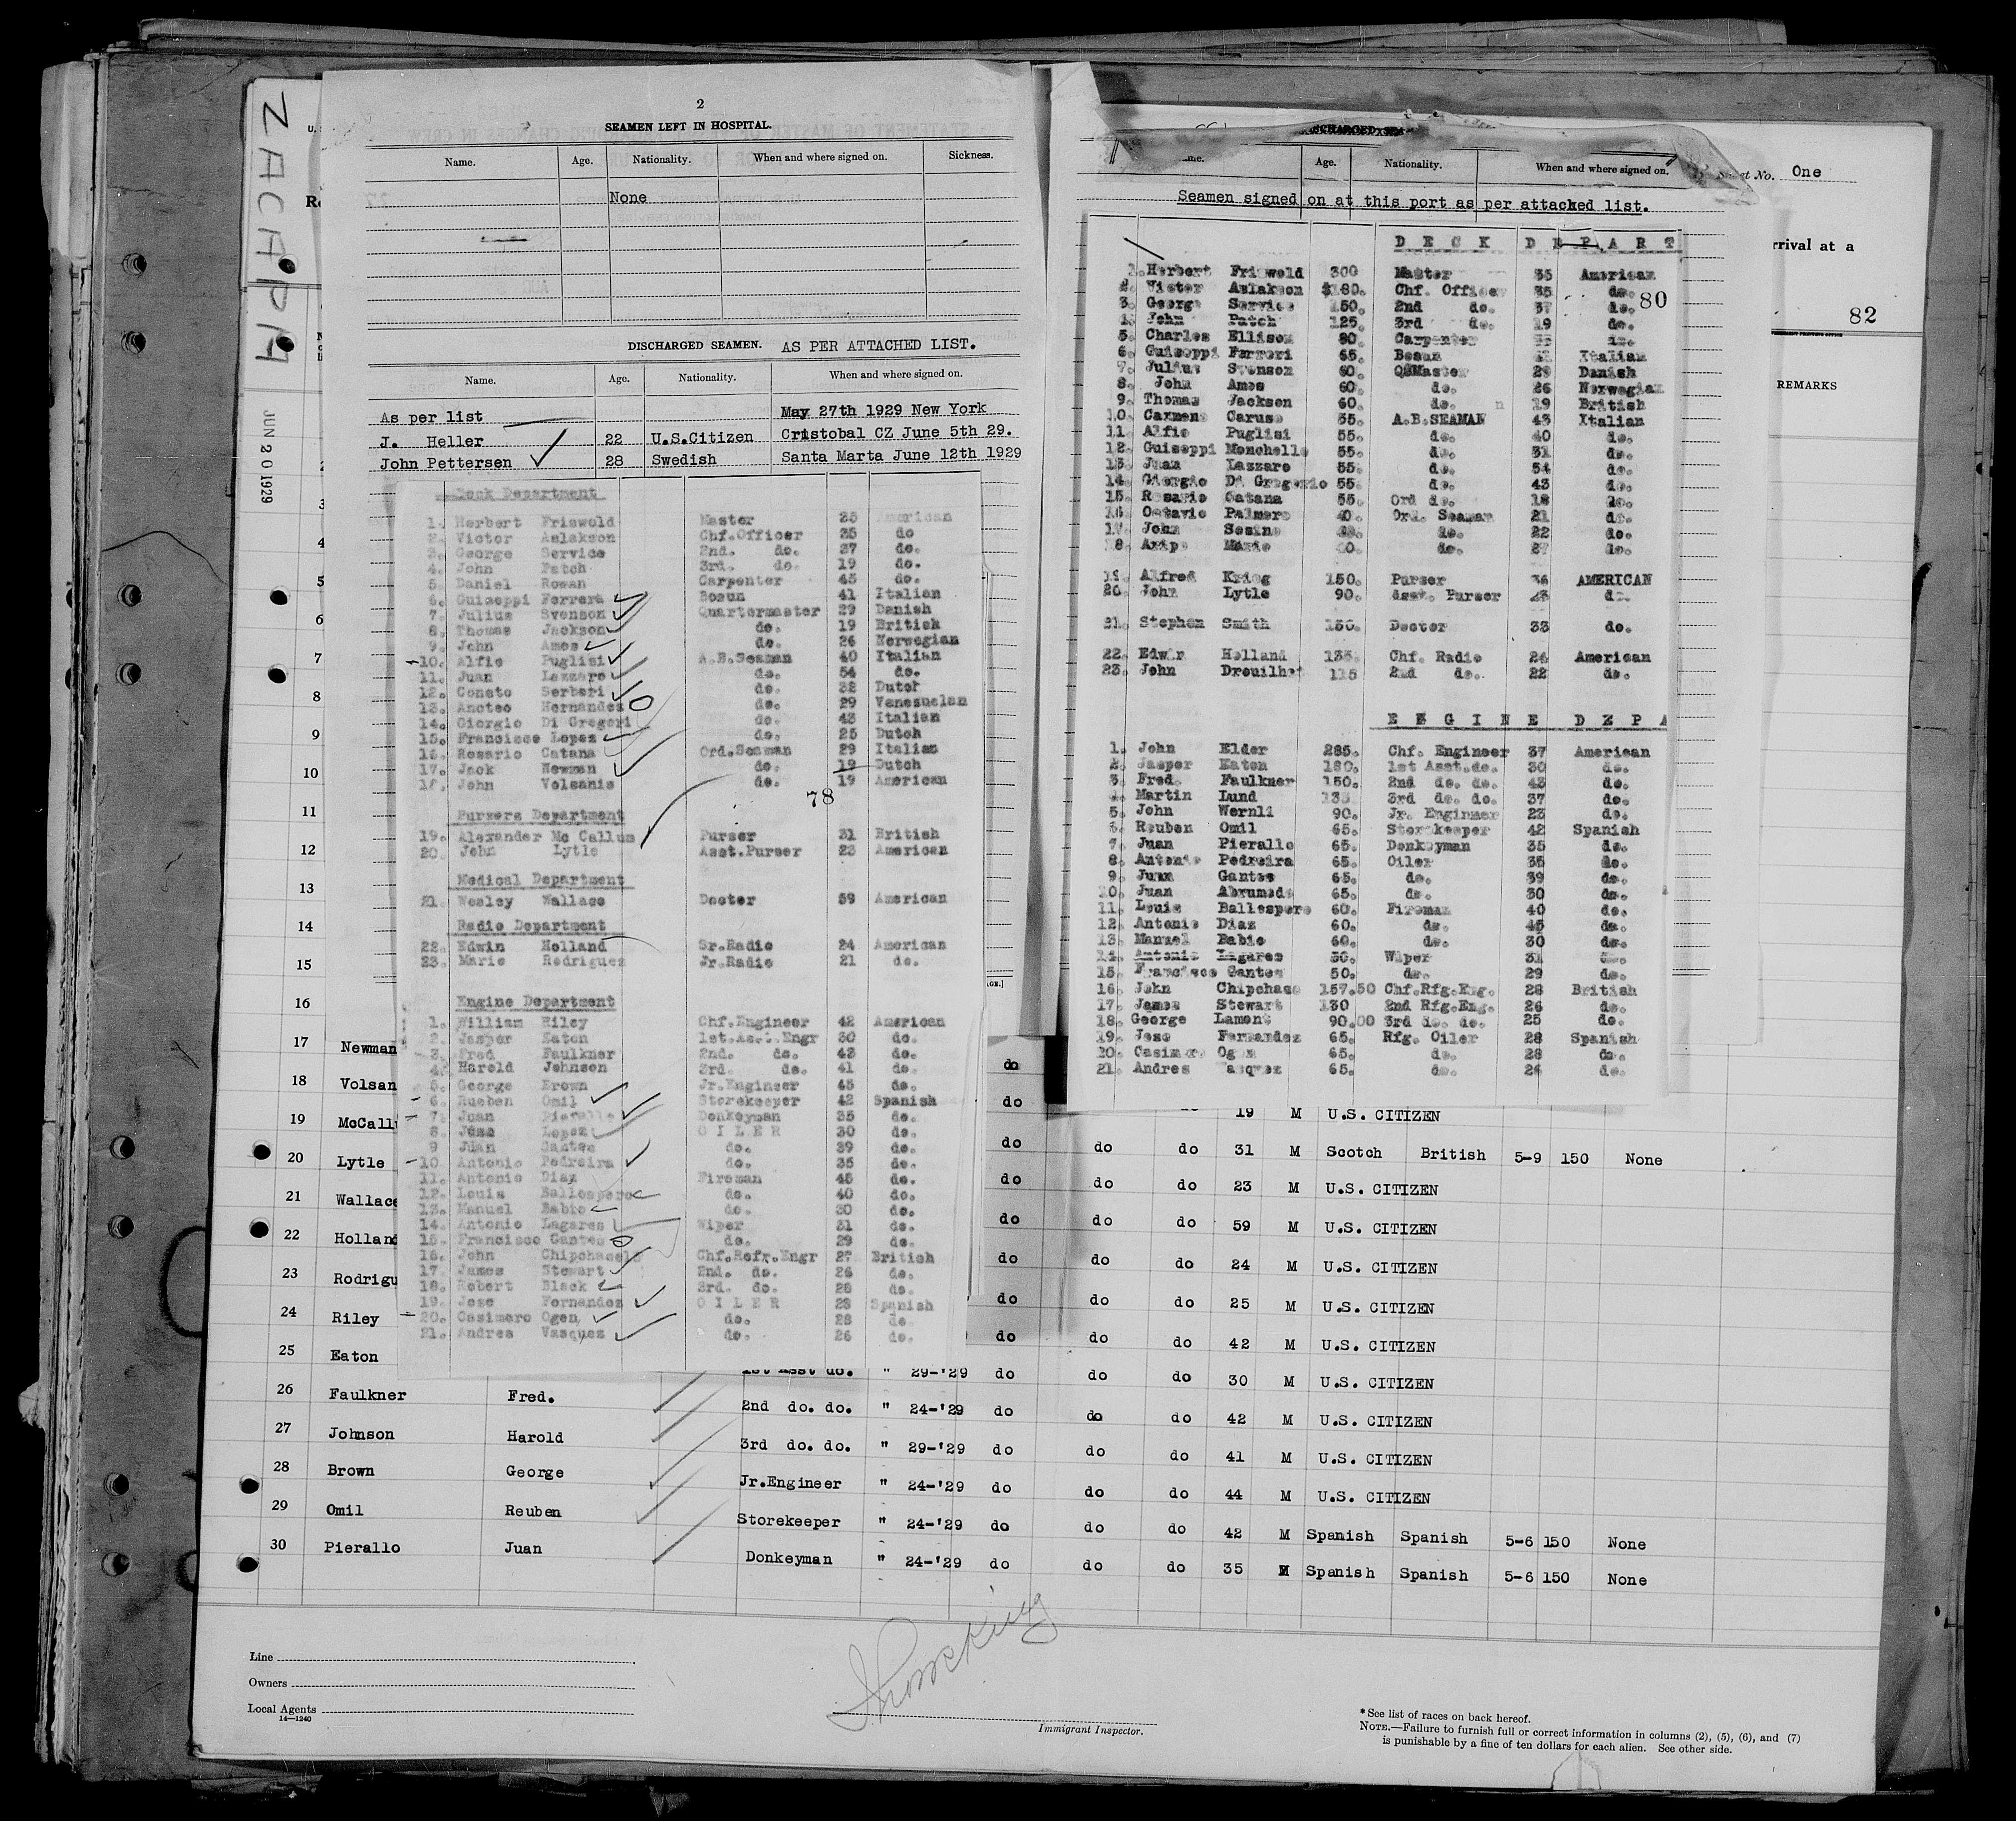 ZACAPA
JUN 20 1929
2
SEAMEN LEFT IN HOSPITAL.
Name. Age. Nationality. When and where signed on. Sickness.
None
DISCHARGED SEAMEN. AS PER ATTACHED LIST.
Name. Age. Nationality. When and where signed on.
As per list May 27th 1929 New York
J. Heller 22 U.S.Citizen Cristobal CZ June 5th 29.
John Pettersen 28 Swedish Santa Marta June 12th 1929
Deck Department
1. Herbert Friswold Master 35 American
2. Victor Aslakson Chf.Officer 35 do
3. George Service 2nd. do. 37 do.
4. John Patch 3rd. do. 19 do.
5. Daniel Rowan Carpenter 45 do.
6. Guiseppi Ferrera Bosun 41 Italian
7. Julius Svenson Quartermaster 29 Danish
8. Thomas Jackson do. 19 British
9. John Amos do. 26 Norwegian
10. Alfio Puglisi A.B.Seaman 40 Italian
11. Juan Lazzaro do. 54 do.
12. Coneto Serberi do. 32 Dutch
13. Anoteo Hernandez do. 29 Venezuelan
14. Giorgio Di Gregori do. 43 Italian
15. Francisco Lopez do. 25 Dutch
16. Rosario Catana Ord.Seaman 29 Italian
17. Jack Newman do. 19 Dutch
18. John Volsanis do. 19 American
78
Pursers Department
19. Alexander Mc Callum Purser 31 British
20. John Lytle Asst.Purser 23 American
Medical Department
21. Wesley Wallace Doctor 59 American
Radio Department
22. Edwin Holland Sr.Radio 24 American
23. Mario Rodriguez Jr.Radio 21 do.
Engine Department
1. William Riley Chf.Engineer 42 American
2. Jasper Eaton 1st.Asst.Engr 30 do.
3. Fred Faulkner 2nd. do. 43 do.
4. Harold Johnson 3rd. do. 41 do.
5. George Brown Jr.Engineer 45 do.
6. Rueben Omil Storekeeper 42 Spanish
7. Juan Pieralle Donkeyman 35 do.
8. Jose Lopez O I L E R 30 do.
9 Juan Gantes do. 39 do.
10. Antonio Pedreira do. 35 do.
11. Antonio Diaz Fireman 45 do.
12. Louis Ballespero do. 40 do.
13. Manuel Babio do. 30 do.
14. Antonio Lagares Wiper 31 do.
15. Francisco Gantes do. 29 do.
16. John Chipchase Chf.Refr.Engr 27 British
17. James Stewart 2nd. do. 26 do.
18. Robert Black 3rd. do. 28 do.
19. Jose Fernandez O I L E R 28 Spanish
20. Casimero Ogen do. 28 do.
21. Andres Vasquez do. 26 do.
Age. Nationality. When and where signed on.
Seamen signed on at this port as per attached list.
D E C K D E P A R T
1. Herbert Friswold 300 Master 35 American
2. Victor Aslakson $180. Chf. Officer 35 do.
80
3. George Service 150. 2nd do. 37 do.
4. John Patch 125. 3rd do. 19 do.
5. Charles Ellison 80. Carpenter do.
6. Guiseppi Ferreri 65. Bosun Italian
7. Julius Svenson 60. Q@Master 29 Danish
8. John Amos 60. do. 26 Norwegian
9. Thomas Jackson 60. do. n 19 British
10. Carmens Caruso 55. A.B.SEAMAN 43 Italian
11. Alfio Puglisi 55. do. 40 do.
12. Guiseppi Monchello 55. do. 31 do.
13. Juan Lazzaro 55. do. 54 do.
14. Giorgio Di Gregorio 55. do. 43 do.
15. Rosario Catana 55. Ord do. 18 do.
16. Octavio Palmero 40. Ord. Seaman 21 do.
17. John Sesino do. 22 do.
18. 40. do. 27 do.
19. Alfred Kring 150. Purser 36 AMERICAN
20. John Lytle 90. Asst. Purser 23 do.
21. Stephen Smith 150. Doctor 33 do.
22. Edwin Holland 135. Chf. Radio 24 American
23. John Drouilhet 115 2nd do. 22 do.
E N G I N E D E P A
1. John Elder 285. Chf. Engineer 37 American
2. Jasper Eaton 180. 1st Asst.do. 30 do.
3. Fred. Faulkner 150. 2nd do. do. 43 do.
4. Martin Lund 135. 3rd do. do. 37 do.
5. John Wernli 90. Jr. Enginner 23 do.
6. Reuben Omil 65. Storekeeper 42 Spanish
7. Juan Pierallo 65. Donkeyman 35 do.
8. Antonio Pedreira 65. Oiler 35 do.
9. Juan Gantes 65. do. 39 do.
10. Juan Abrumedo 65. do. 30 do.
11. Louis Ballespero 60. Fireman 40 do.
12. Antonio Diaz 60. do. 45 do.
13. Manuel Babio 60. do. 30 do.
14. Antonio Lagares 50. Wiper 31 do.
15. Francisco Gantes 50. do. 29 do.
16. John Chipchase 157.50 Chf.Rfg.Eng. 28 British
17. James Stewart 130 2nd Rfg.Eng. 26 do.
18. George Lamont 90.00 3rd do. do. 25 do.
19. Jose Fernandez 65. Rfg. Oiler 28 Spanish
20. Casimero Ogen 65. do. 28 do.
21. Andres Vasquez 65. do. 26 do.
Sheet No. One
rrival at a
82
REMARKS
3
4
5
6
7
8
9
10
11
12
13
14
15
16
17 Newman do
18 Volsan do 19 M U.S. CITIZEN
19 McCall do do do 31 M Scotch British 5-9 150 None
20 Lytle do do do 23 M U.S. CITIZEN
21 Wallace do do do 59 M U.S. CITIZEN
22 Holland do do do 24 M U.S. CITIZEN
23 Rodrigu do do do 25 M U.S. CITIZEN
24 Riley do do do 42 M U.S. CITIZEN
25 Eaton 1st Asst do. " 29-'29 do do do 30 M U.S. CITIZEN
26 Faulkner Fred. 2nd do. do. " 24-'29 do do do 42 M U.S. CITIZEN
27 Johnson Harold 3rd do. do. " 29-'29 do do do 41 M U.S. CITIZEN
28 Brown George Jr.Engineer " 24-'29 do do do 44 M U.S. CITIZEN
29 Omil Reuben Storekeeper " 24-'29 do do do 42 M Spanish Spanish 5-6 150 None
30 Pierallo Juan Donkeyman " 24-'29 do do do 35 M Spanish Spanish 5-6 150 None
Line
Owners
Local Agents
14—1240
Immigrant Inspector.
*See list of races on back hereof.
NOTE.—Failure to furnish full or correct information in columns (2), (5), (6), and (7)
is punishable by a fine of ten dollars for each alien. See other side.